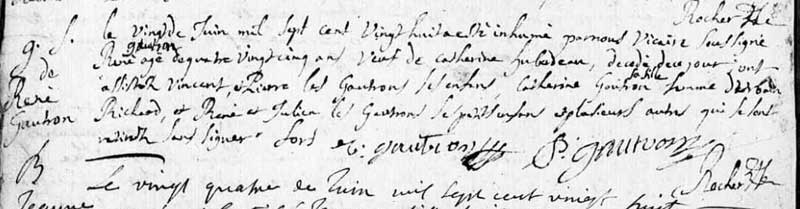 Rocher
g. S. le vingt de Juin mil sept cent vingt huit a esté inhumé par nous Vicaire soussigné
de René gautron agé de quatre vingt cinq ans veuf de Catherine hubedeau, decedé de ce jour ont
René assisté Vincent, et Pierre les Gautrons ses enfans, Catherine Gautron sa fille femme d'urbain
Gautron Richard, et René, et Julien les Gautrons ses petits enfans et plusieurs autres qui se sont
retirés sans signer fors v. gautron P. gautron
B Rocher
Le vingt quatre de Juin mil sept cent vingt huit
Jeanne